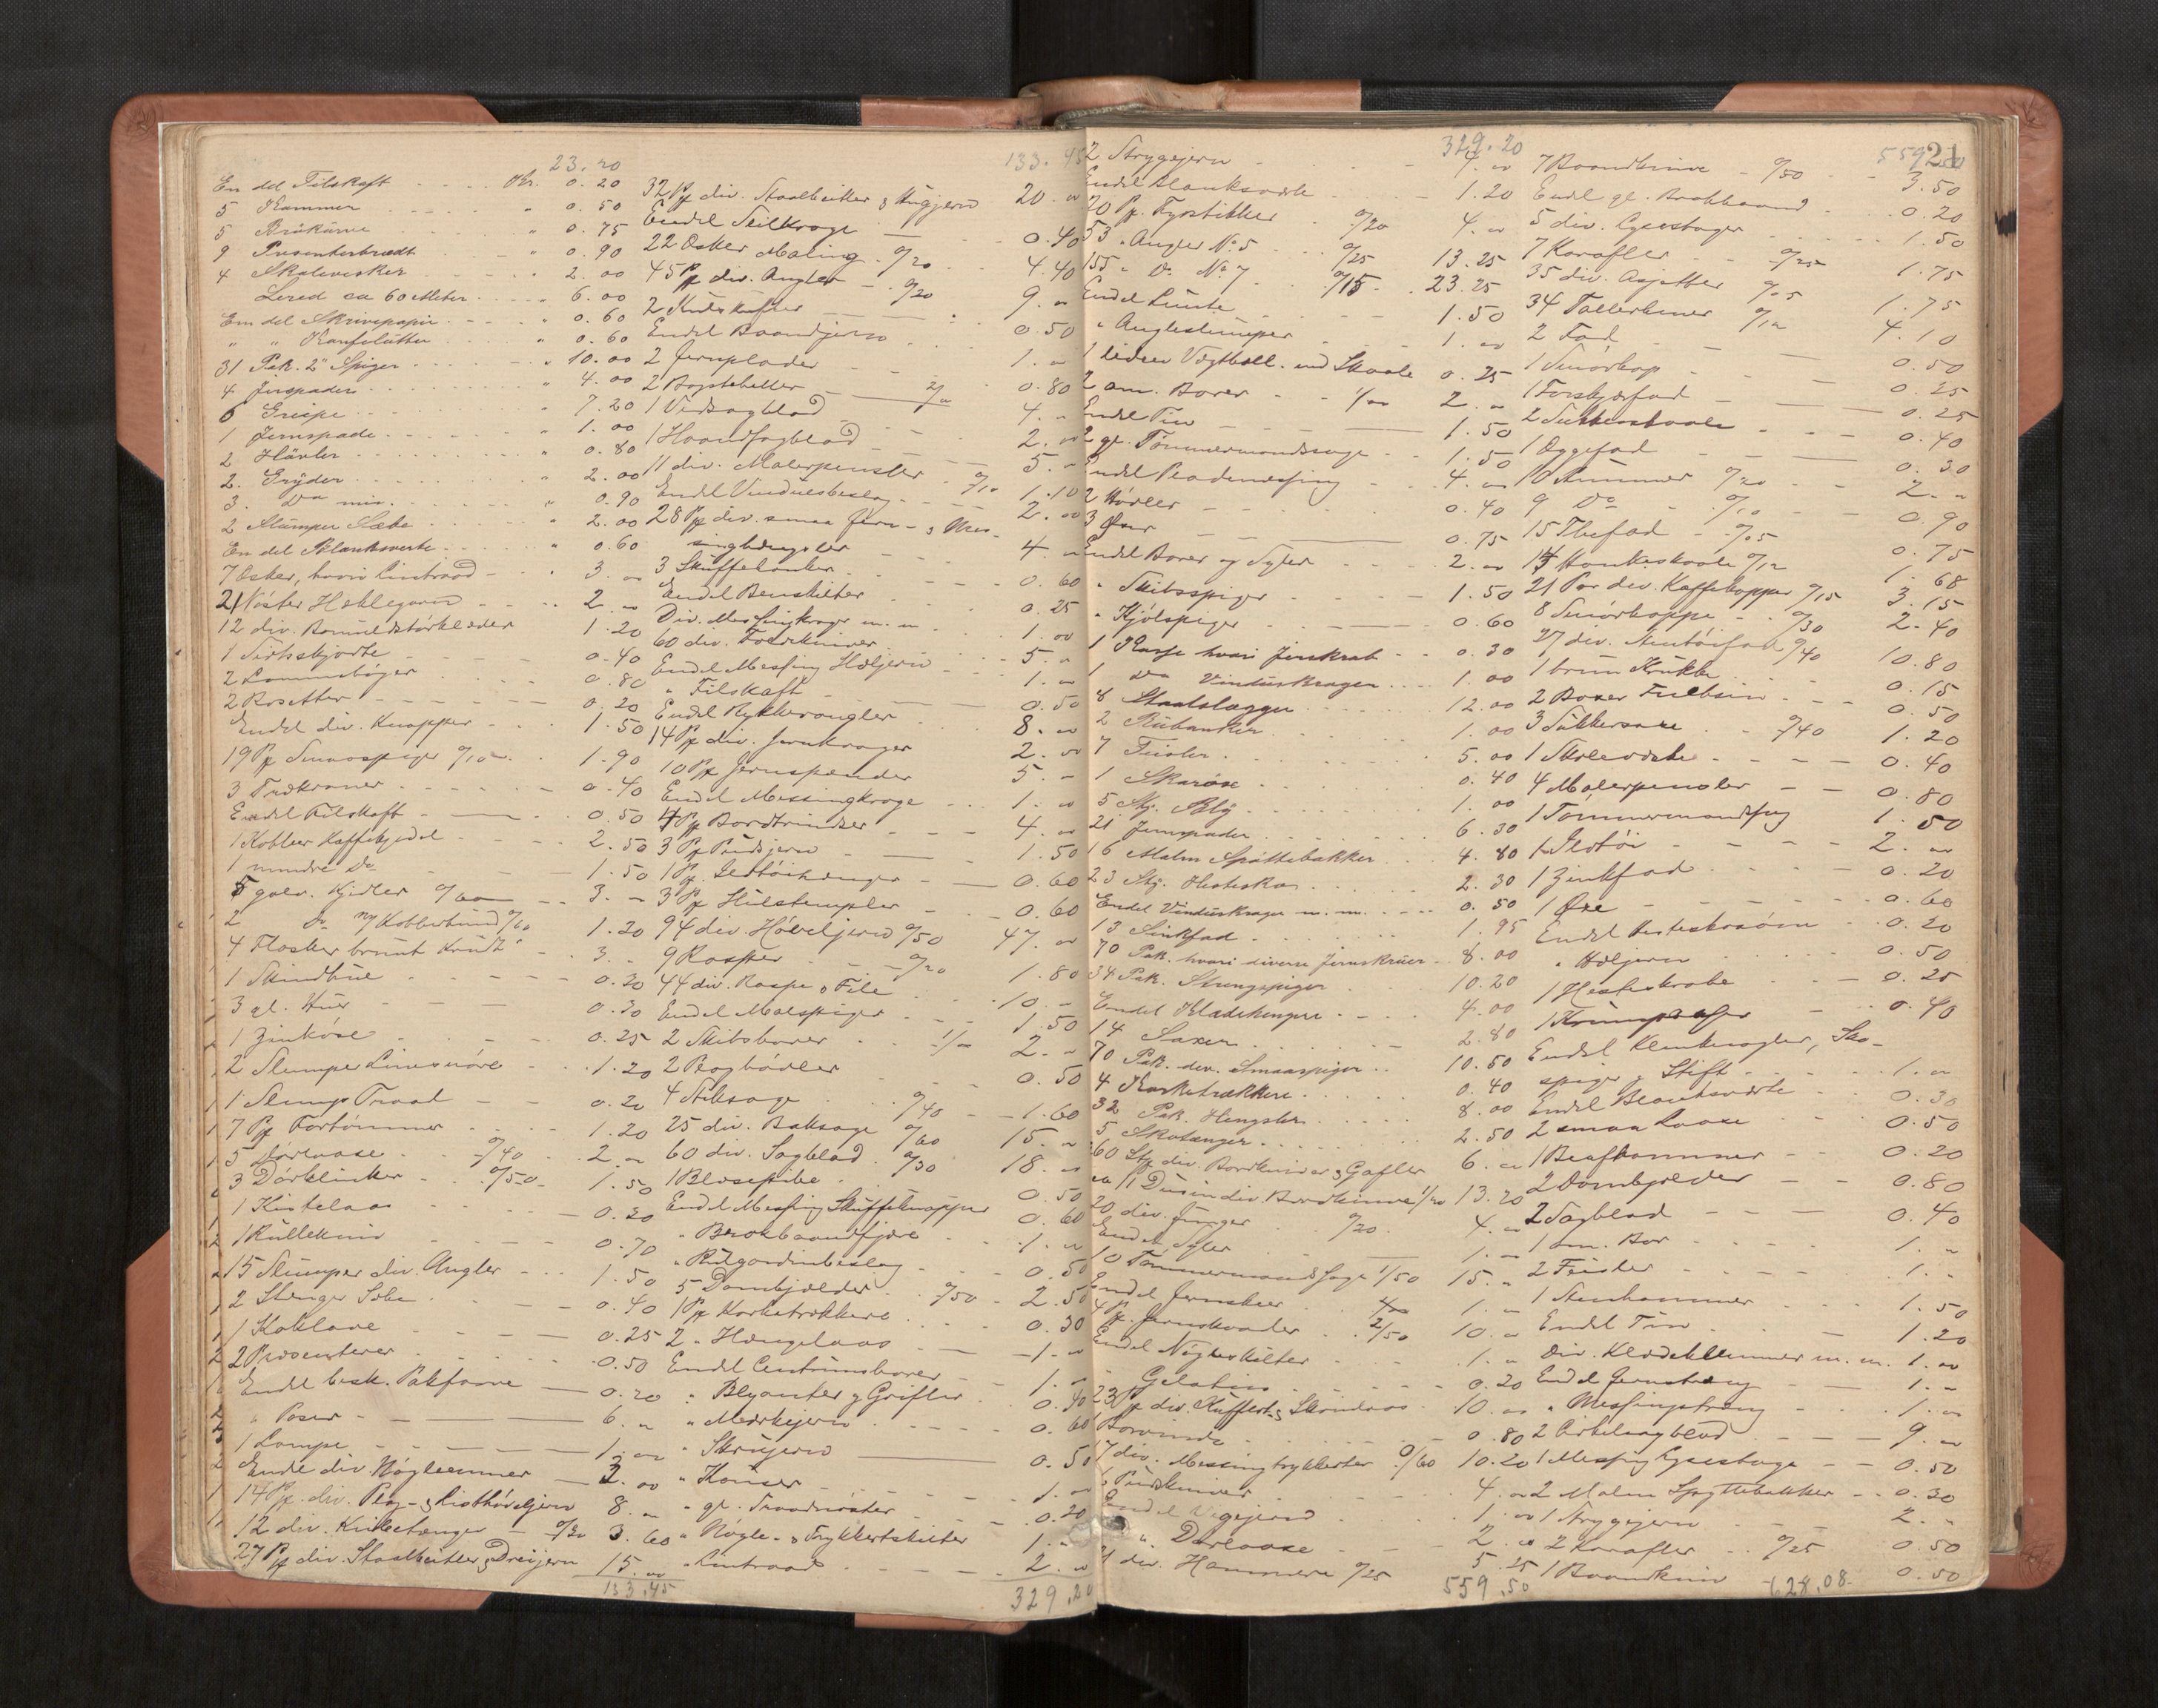 23.20
En del Filskaft Kr. 0.20
5 Kammer " 0.50
5 " 0.75
9 Presenterbrædt " 0.90
4 " 2.00
Lered ca 60 Meter " 6.00
En del Skrivepapir " 0.60
" " " 0.60
31 Pak. 2" Spiger " 10.00
4 Jernspader " 4.00
6 Greipe " 7.20
1 Jernspade " 1.00
2 " 0.80
2. Gryder " 2.00
3. Do min. " 0.90
2 Stumper Sæbe " 2.00
En del Blanksverte " 0.60
7 Æsker, hvori 3. "
21 Nøster Heklegarn 2. "
12 div. 1.20
1 0.40
2 Lommebøger 0.80
2 Rosetter 0.20
Endel div. Knapper 1.50
19 Pk Smaaspiger 0/10 1.90
3 Trækraner 0.40
Endel Filskaft 0.50
1 Kobber Kaffekjedel 2.50
1 mindre Do 1.50
5 galv. Kjedler 0/60 3. "
2 Do m/ Kobberbund 0/60 1.20
4 Flasker brunt 3. "
1 Skindhue 0.30
3 gl. Huer 0.30
1 Zinkøse 0.25
2 Stumper Linesnøre 1.20
1 Stump Traad 0.20
7 Pk Fortømmer 1.20
5 Dørlaase 0/40 2. "
3 Dørklinker 0/50 1.50
1 Kistelaas 0.20
1 Rullekniv 0.70
15 Stumper div. Angler 1.50
2 Stenger Sæbe 0.40
1 0.25
2 Presenterer 0.50
Endel besk. Pakfarve 0.20
" Poser 6. "
1 Lampe 1. "
Endel div. Nøgleemner 3. "
14 Pk. div. Plog- & Listhøveljern 8. "
12 div. Knibetænger 0/30 3.60
27 Pk div. Staalbeitler & Dreijern 15. "
133.45
133.45
32 Pk div. Staalbeitler & Hugjern 20. "
Endel Seilkroge 0.40
22 Æsker Maling 0/20 4.40
45 Pk div. Angler 0/20 9. "
2 0.50
Endel Baandjern 1. "
2 Jernplader 0.80
2 4. "
1 Vedsagblad 2. "
1 Haandsagblad 5. "
11 div. Malerpensler 0/10 1.10
Endel Vinduesbeslag 2. "
28 Pk div. smaa Jern- & Mes-
singhengsler 4. "
3 Skuffehanker 0.60
Endel Benskilter 0.25
Div. Messingkroge m.m. 1. "
60 div. 5. "
Endel Messing Hæljern 1. "
" Filskaft 0.50
Endel Rykkerangler 8. "
14 Pk div. Jernkroger 2. "
10 Pk Jernspender 5. "
Endel Messingkroge 1. "
4 Pk Bordtrindser 4. "
3 Pk Pudsjern 1.50
1 Pk. 0.60
3 Pk Hulstempler 0.60
94 div. Høveljern 0/50 47. "
9 Rasper 0/20 1.80
44 div. Raspe & File 10. "
Endel Malspiger 1.50
2 Skibsborer 1/00 2. "
2 Ploghøvler 0.50
4 Stiksage 0/40 1.60
25 div. Baksage 0/60 15. "
60 div. Sagblad 0/30 18. "
1 Blæsepibe 0.50
Endel Messing Skuffeknapper 0.60
" Brokbaandfjære 1. "
" Rulgardinbeslag 0.50
5 Dombjælder 0/50 2.50
1 Pk Korketrækkere 0.30
2 " Hængelaas 1. "
Endel Centrumsborer 1. "
" Blyanter & Grifler 0.40
" Merkejern 0.60
" Skrujern 0.50
" Kouser 1. "
" gl. Traadnøster 0.20
" Nøgle- & Trykkertskilter 1. "
" 2. "
329.20
329.20
2 Strygejern 4. "
Endel Blanksverte 1.20
20 Pk. Fyrstikker 0/20 4. "
53 " Angler No. 5 0/25 13.25
155 " Do No. 7 0/15 23.25
Endel Lunte 1.50
" Anglestumper 1. "
1 liden Vægtball. med Skaale 0.25
2 am. Borer 1/00 2. "
Endel Tin 1.50
2 gl. Tømmermandssage 1.50
Endel Plademessing 4. "
2 Høvler 0.40
3 Øxer 0.75
Endel Borer og Syler 2. "
" Skibsspiger 1.50
" Kjølspiger 0.60
1 Kasse hvori Jernskrab 0.30
1 Do Vinduskroger 1.00
8 Staalslægger 12.00
2 Rubanker 1.00
7 Feisler 5.00
1 Skarøxe 0.40
5 Kg. Bly 1.00
21 Jernspader 6.30
16 Malm Spøttebakker 4.80
23 Kg. Hestesko 2.30
Endel Vinduskroger m.m. 0.50
13 Sinkfad 1.95
70 Pak. hvori diverse Jernskruer 8.00
34 Pak. Strengspiger 10.20
Endel Kladehengere 4.00
14 Saxer 2.80
70 Pak. div. Smaaspiger 10.50
4 Korketrækkere 0.40
32 Pak. Hengsler 8.00
5 Skotænger 2.50
60 Stk div. Bordkniver & Gafler 6. "
11 Dusin div. Bordknive 1/20 13.20
20 div. 0/20 4. "
Endel Syler 1. "
10 Tømmermands Sage 1/50 15. "
Endel Jernskeer 1. "
4 Pk. Jernskovler 2/50 10. "
Endel Nøgleskilter 1. "
" Gelatin 0.20
23 Pk div. Kuffert- & Skrinlaas 10. "
1 Borvinde 0.80
17 div. Messingtrykkerter 0/60 10.20
5 Pudskniver 4. "
Endel Vegejern 1. "
" Dørlaase 2. "
21 div. Hammere 0/25 5.25
559.50
559.50
21
7 Baandknive 0/50 3.50
Endel gl. Brokbaand 0.20
5 div. Lysestager 1.50
7 Karafler 0/25 1.75
35 div. Asjetter 0/05 1.75
34 Tallerkener 0/12 4.10
2 Fad 0.50
1 Smørkop 0.25
1 0.25
2 Sukkerskaale 0.40
1 Æggefad 0.30
10 0/20 2. "
9 Do 0/10 0.90
15 Thefad 0/05 0.75
14 Hankeskaale 0/12 1.68
21 Par div. Kaffekopper 0/15 3.15
8 Smørkoppe 0/30 2.40
27 div. Stentøifad 0/40 10.80
1 brun Krukke 0.15
2 Boxer 0.50
3 Sukkersaxe 0/40 1.20
1 0.40
4 Malerpensler 0.80
1 Tømmermandssag 1.50
1 Ildtøi 2. "
1 Zinkfad 0.20
1 Øxe 0.60
Endel Hesteskosøm 0.20
" Hæljern 0.50
1 Hesteskrabe 0.25
1 0.40
Endel Klinknagler, Sko-
spiger & Stift 1. "
Endel Blanksverte 0.30
2 smaa Laase 0.50
1 Beafhammer 0.20
2 Dombjælder 0.80
2 Sagblad 0.40
1 am. Bor 1. "
2 Feisler 1. "
1 Stenhammer 1.50
Endel Tin 1.20
Div. Klædeklemmer m.m. 1. "
Endel Jernstreng 1. "
" Messingstreng 1. "
2 Cirkelsagblad 9. "
1 Messing Lysestage 0.50
2 Malm Spyttebakker 0.30
1 Strygejern 2. "
2 Karafler 0/25 0.50
1 Baandkniv 0.50
628.08